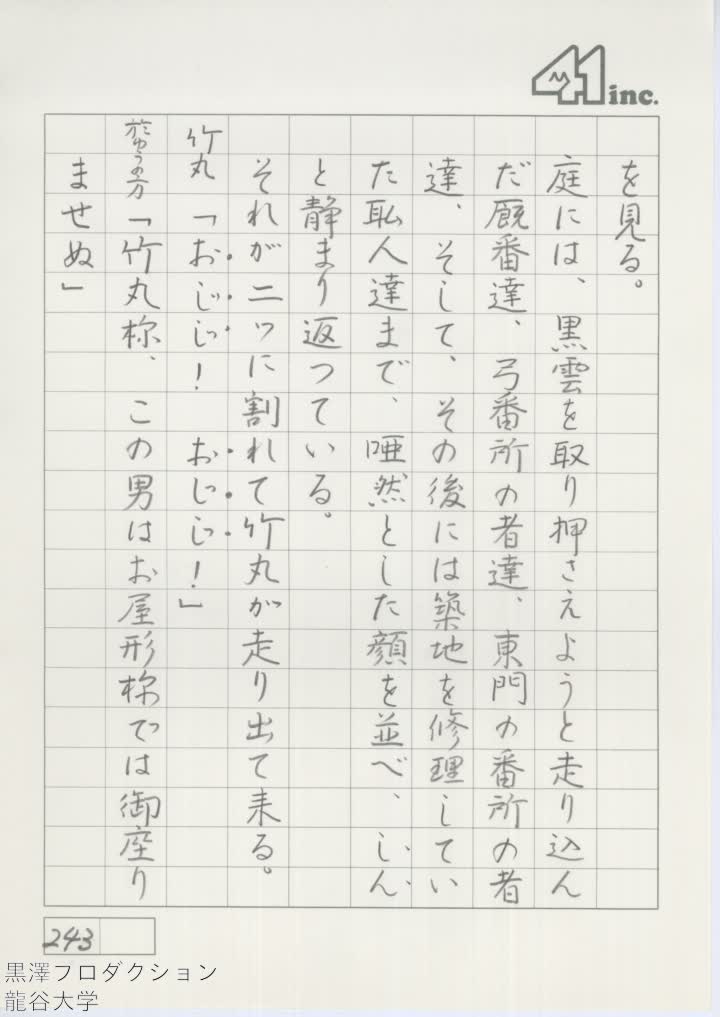 41 inc.
を見る。
庭には、黒雲を取り押さえようと走り込ん
だ厩番達、弓番所の者達、東門の番所の者
達、そして、その後には築地を修理してい
た私人達まで、唖然とした顔を並べ、しん
と静まり返つている。
それが二ツに割れて竹丸が走り出て来る。
竹丸「おじじ！おじじ！」
於ゆうの方「竹丸様、この男はお屋形様では御座り
ませぬ」
243
黒澤プロダクション
龍谷大学